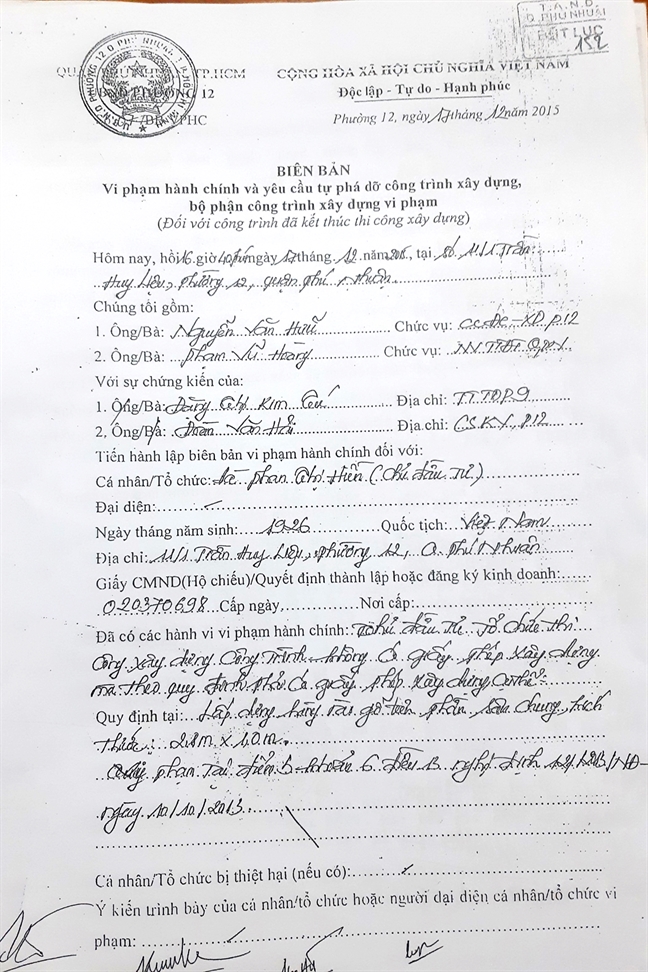 T.A.N.D
Q.PHÚ NHUẬN
BÚT LỤC
152
TP.HCM CỘNG HÒA XÃ HỘI CHỦ NGHĨA VIỆT NAM
PHƯỜNG 12 Độc lập - Tự do - Hạnh phúc
Phường 12, ngày 17 tháng 12 năm 2015
BIÊN BẢN
Vi phạm hành chính và yêu cầu tự phá dỡ công trình xây dựng,
bộ phận công trình xây dựng vi phạm
(Đối với công trình đã kết thúc thi công xây dựng)
Hôm nay, hồi 16 giờ 40 phút ngày 17 tháng 12 năm 2015, tại số 111/1 Trần
Huy Liệu, phường 12, quận phú nhuận
Chúng tôi gồm:
1. Ông/Bà: Nguyễn Văn Hữu Chức vụ: XD P.12
2. Ông/Bà: Phạm Vũ Hoàng Chức vụ:
Với sự chứng kiến của:
1. Ông/Bà: Đặng Thị Kim Địa chỉ: TT TDP.9
2. Ông/Bà: Văn Hải Địa chỉ: CSKV, P.12
Tiến hành lập biên bản vi phạm hành chính đối với:
Cá nhân/Tổ chức: Bà Phan Thị Hiền (Chủ đầu tư)
Đại diện:
Ngày tháng năm sinh: 1926 Quốc tịch: Việt Nam
Địa chỉ: 111/1 Trần Huy Liệu, phường 12, Q. Phú Nhuận
Giấy CMND(Hộ chiếu)/Quyết định thành lập hoặc đăng ký kinh doanh:
020370698 Cấp ngày, Nơi cấp:
Đã có các hành vi vi phạm hành chính: chủ đầu tư tổ chức thi
công xây dựng công trình không có giấy phép xây dựng
mà theo quy định phải có giấy phép xây dựng cụ thể:
Quy định tại: Lắp dựng hàng rào gỗ trên phần sân chung, kích
thước: 2.8m x 1.0m.
phạm tại điểm khoản 6 điều 13 nghị định 121/2013/NĐ-
ngày 10/10/2013.
Cá nhân/Tổ chức bị thiệt hại (nếu có):
Ý kiến trình bày của cá nhân/tổ chức hoặc người đại diện cá nhân/tổ chức vi
phạm: